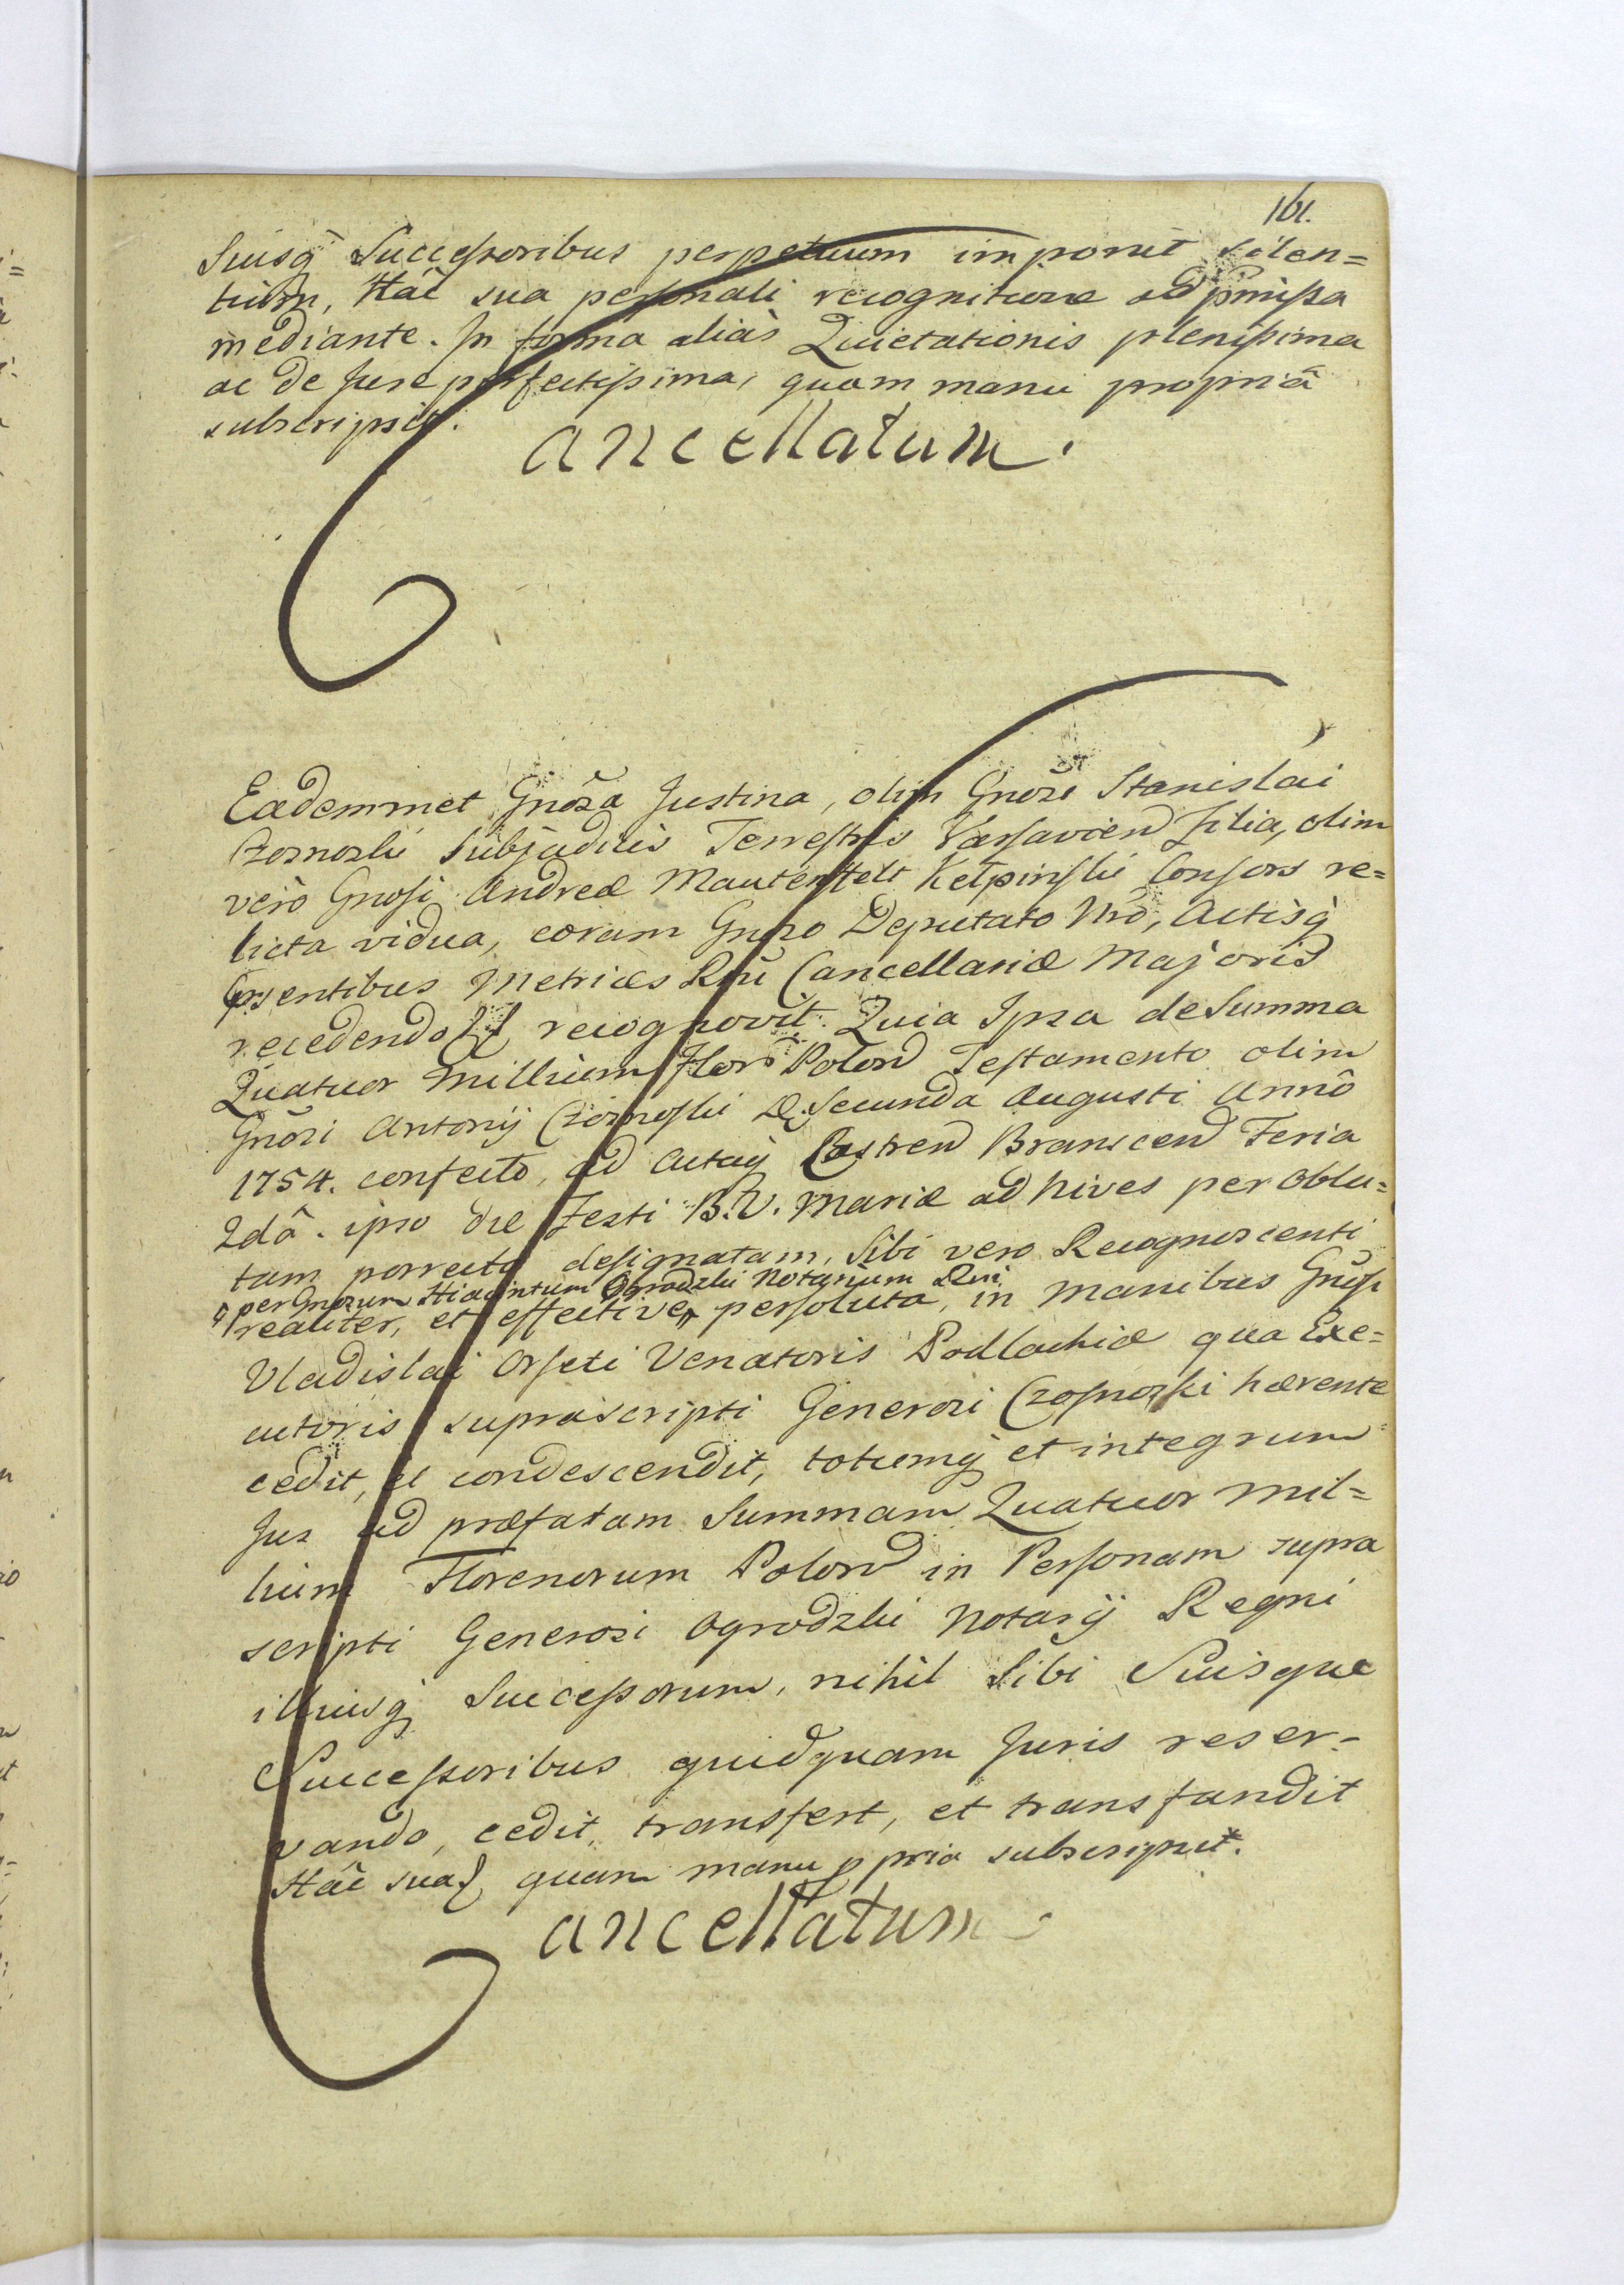 161.
Suisq̃ Successoribus perpetuum imponit silen=
tium, Hâc sua personali recognitione ad p̃missa
mediante. In forma aliàs Quietationis plenissima
ac de Jure perfectissima, quam manu propriâ
subscripsit.
Cancellatum.
Eademmet Gnõsa Justina, olim Gnõsi Stanislai
Czosnoski Subjudicis Terrestris Varsavien Filia, olim
verò Gnosi Andreæ Mautenffelt Kiełpinski Consors re=
licta vidua, coram Gnoso Deputato Nrõ, Actisq̃
p̃sentibus Metrices Rñi Cancellariæ Majoris
recedendo recognovit. Quia Ipsa de Summa
Quatuor Millium Flor Polon Testamento olim
Gnõsi Antonij Czosnoski D. Secunda Augusti Annô
1754. confecto, ad Actaq̃ Castren Branscen Feria
2dâ. ipso die Festi B.V. Mariæ ad Nives per Obla=
tam porrecto designatam, Sibi vero Recognoscenti
per Gnosum Hiacintum Ogrodzki Notarium Rñi
realiter, et effective persoluta, in manibus Gnõsi
Vladislai Orseti Venatoris Podlachiæ qua Exe=
cutoris suprascripti Generosi Czosnoski hærente
cedit, et condescendit, totumq̃ et integrum
Jus ad præfatam Summam Quatuor mil=
lium Florenorum Polon in Personam supra
scripti Generosi Ogrodzki Notarij Regni
illiusq̃ Successorum, nihil Sibi Suisque
Successoribus quidquam Juris reser=
vando, cedit, transfert, et transfundit
Hâc sua quam manu ppria subscripsit.
Cancellatum